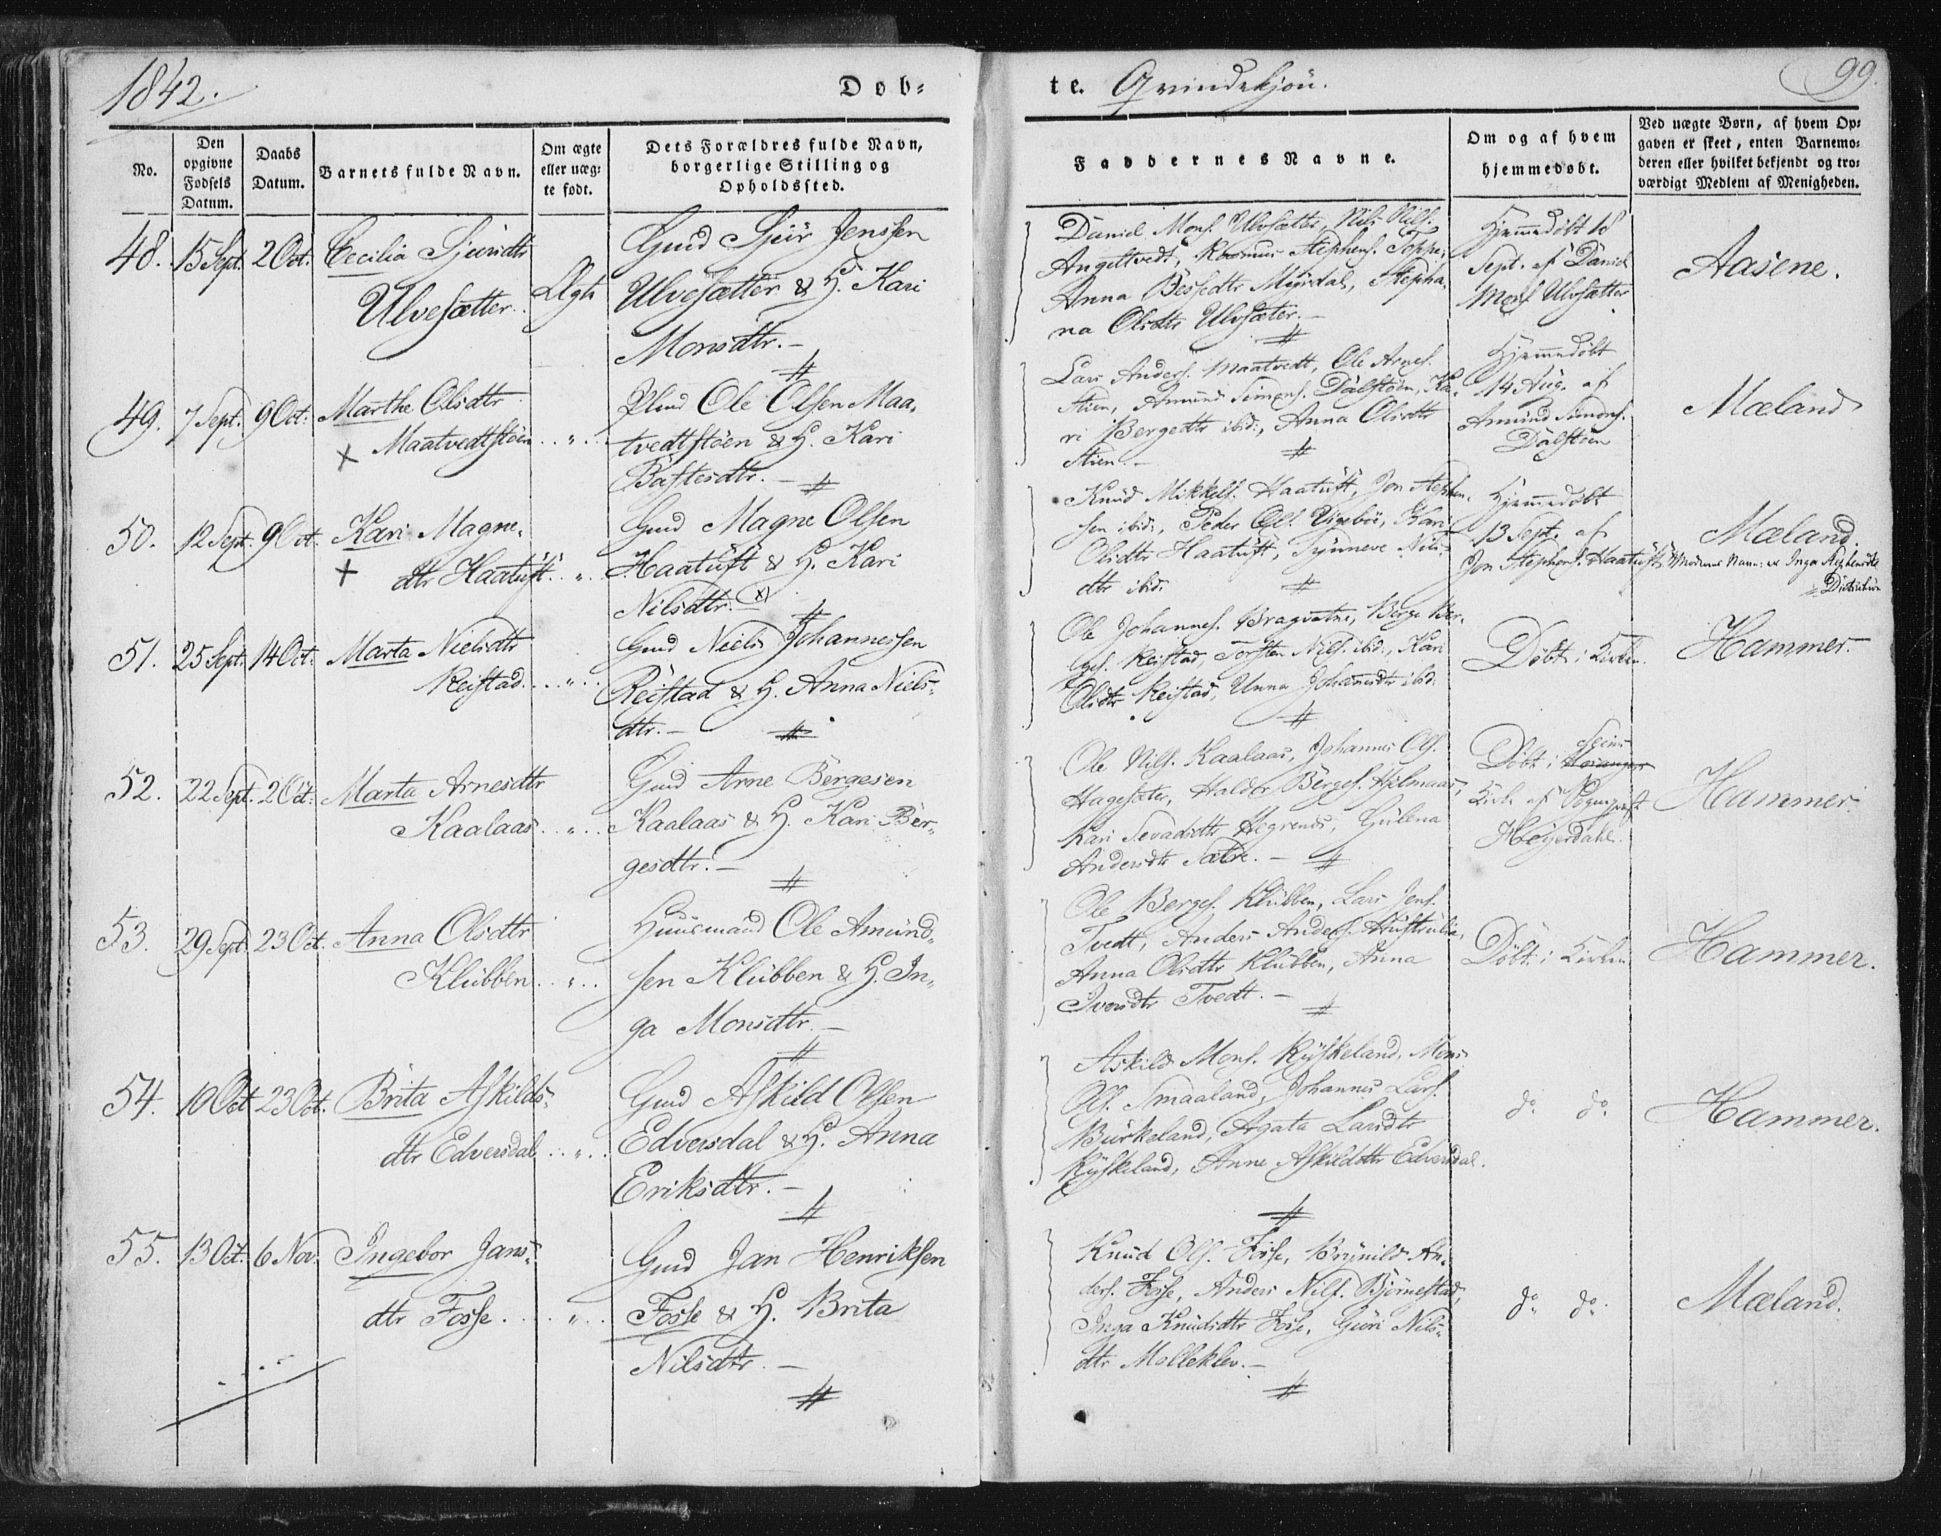 1842.
Døb-
te. Qvindekjøn.
99.
No.
Den opgivne Fødsels Datum.
Daabs Datum.
Barnets fulde Navn.
Om ægte eller uæg-te født.
Dets Forældres fulde Navn, borgerlige Stilling og Opholdssted.
Faddernes Navne.
Om og af hvem hjemmedøbt.
Ved uægte Børn, af hvem Op-gaven er skeet, enten Barnemo-deren eller hvilket bekjendt og tro-værdigt Medlem af Menigheden.
48. 15 Sept. 2 Oct. Cecilia Sjursdtr
Ulvesætter. Ægte
Gmd Sjur Jenssen
Ulvesætter & H. Kari
Monsdtr. —
Daniel Mons. Ulvsætter, Nils Nils.
Angeltvedt, Rasmus Stephens. Toppe,
Anna Mjørdal, Stepha-
na Olsdtr Ulvsæter. —
Hjemmedøbt 18
Sept. af Daniel
Mons. Ulvsætter
Aasene.
49. 7 Sept. 9 Oct. Marthe Olsdtr
× Maatvedtstøen . . „ . .
Plmd Ole Olsen Maa-
tvedtstøen & H. Kari
Bastesdtr. —
Lars Anders. Maatvedt, Ole Arnes.
Stien, Amund Simons. Dalstøen, Ka-
ri Bergedtr ibid:, Anna Olsdtr
Stien. —
Hjemmedøbt
14 Aug. af
Amund Simons.
Dalstøen
Mæland
50. 12 Sept. 9 Oct. Kari Magne-
× dtr Haatuft . . „ .
Gmd Magne Olsen
Haatuft & H. Kari
Nilsdtr. ×)
Knud Mikkels. Haatuft, Jon Stephen-
sen ibid:, Peder Ols. Vigebøe, Kari
Olsdtr Haatuft, Synneve Nils-
dtr ibid.
Hjemmedøbt
13 Sept. af
Jon Stephens. Haatuft
Mæland.
Moderens Navn: er Inga Stephensdtr
51. 25 Sept. 14 Oct. Marta Nielsdtr
Reistad. . . „ . .
Gmd Neels Johannessen
Reistad & H. Anna Niels-
dtr. —
Ole Johannes. Bragvatne, Berge Ber-
ges. Reistad, Torsten Niels. ibid., Kari
Olsdtr Reistad, Unna Johannesdtr ibid.
Døbt i Kirken.
Hammer.
52. 22 Sept. 2 Oct. Marta Arnesdtr
Kaalaas . . „ . .
Gmd Arne Bergesen
Kaalaas & H. Kari Ber-
gesdtr. —
Ole Nils. Kaalaas, Johannes Ols.
Hagesæter, Haldor Berges. Hjelmaas,
Kari Hegrenes, Gulena
Andersdtr Sætre. —
Døbt i Hosanger
Kirke af Sogneprest
Heyerdahl.
Hammer
53. 29 Sept. 23 Oct. Anna Olsdtr
Klubben . . „ . .
Huusmand Ole Amund-
sen Klubben & H. In-
ga Monsdtr. —
Ole Berges. Klubben, Lars Jens.
Tvedt, Anders Anders.
Anna Olsdtr Klubben, Anna
Iversdtr Tvedt. —
Døbt i Kirken
Hammer.
54. 10 Oct 23 Oct. Brita Askilds-
dtr Edversdal . . „ . .
Gmd Askild Olsen
Edversdal & H. Anna
Eriksdtr. —
Askild Mons. Ryskeland, Mons
Ols. Smaaland, Johannes Lars.
Burkeland, Agata Larsdtr
Ryskeland, Anne Askildsdtr Edversdal.
do do
Hammer.
55. 13 Oct. 6 Nov. Ingebor Jans-
dtr Fosse . . . „ . .
Gmd Jan Henriksen
Fosse & H. Brita
Nilsdtr. —
Knud Ols. Fosse, Brynild An-
ders. Fosse, Anders Nils. Bjørnestad,
Inga Knudsdtr Fosse, Guri Nils-
dtr Molleklev. —
do do
Mæland.